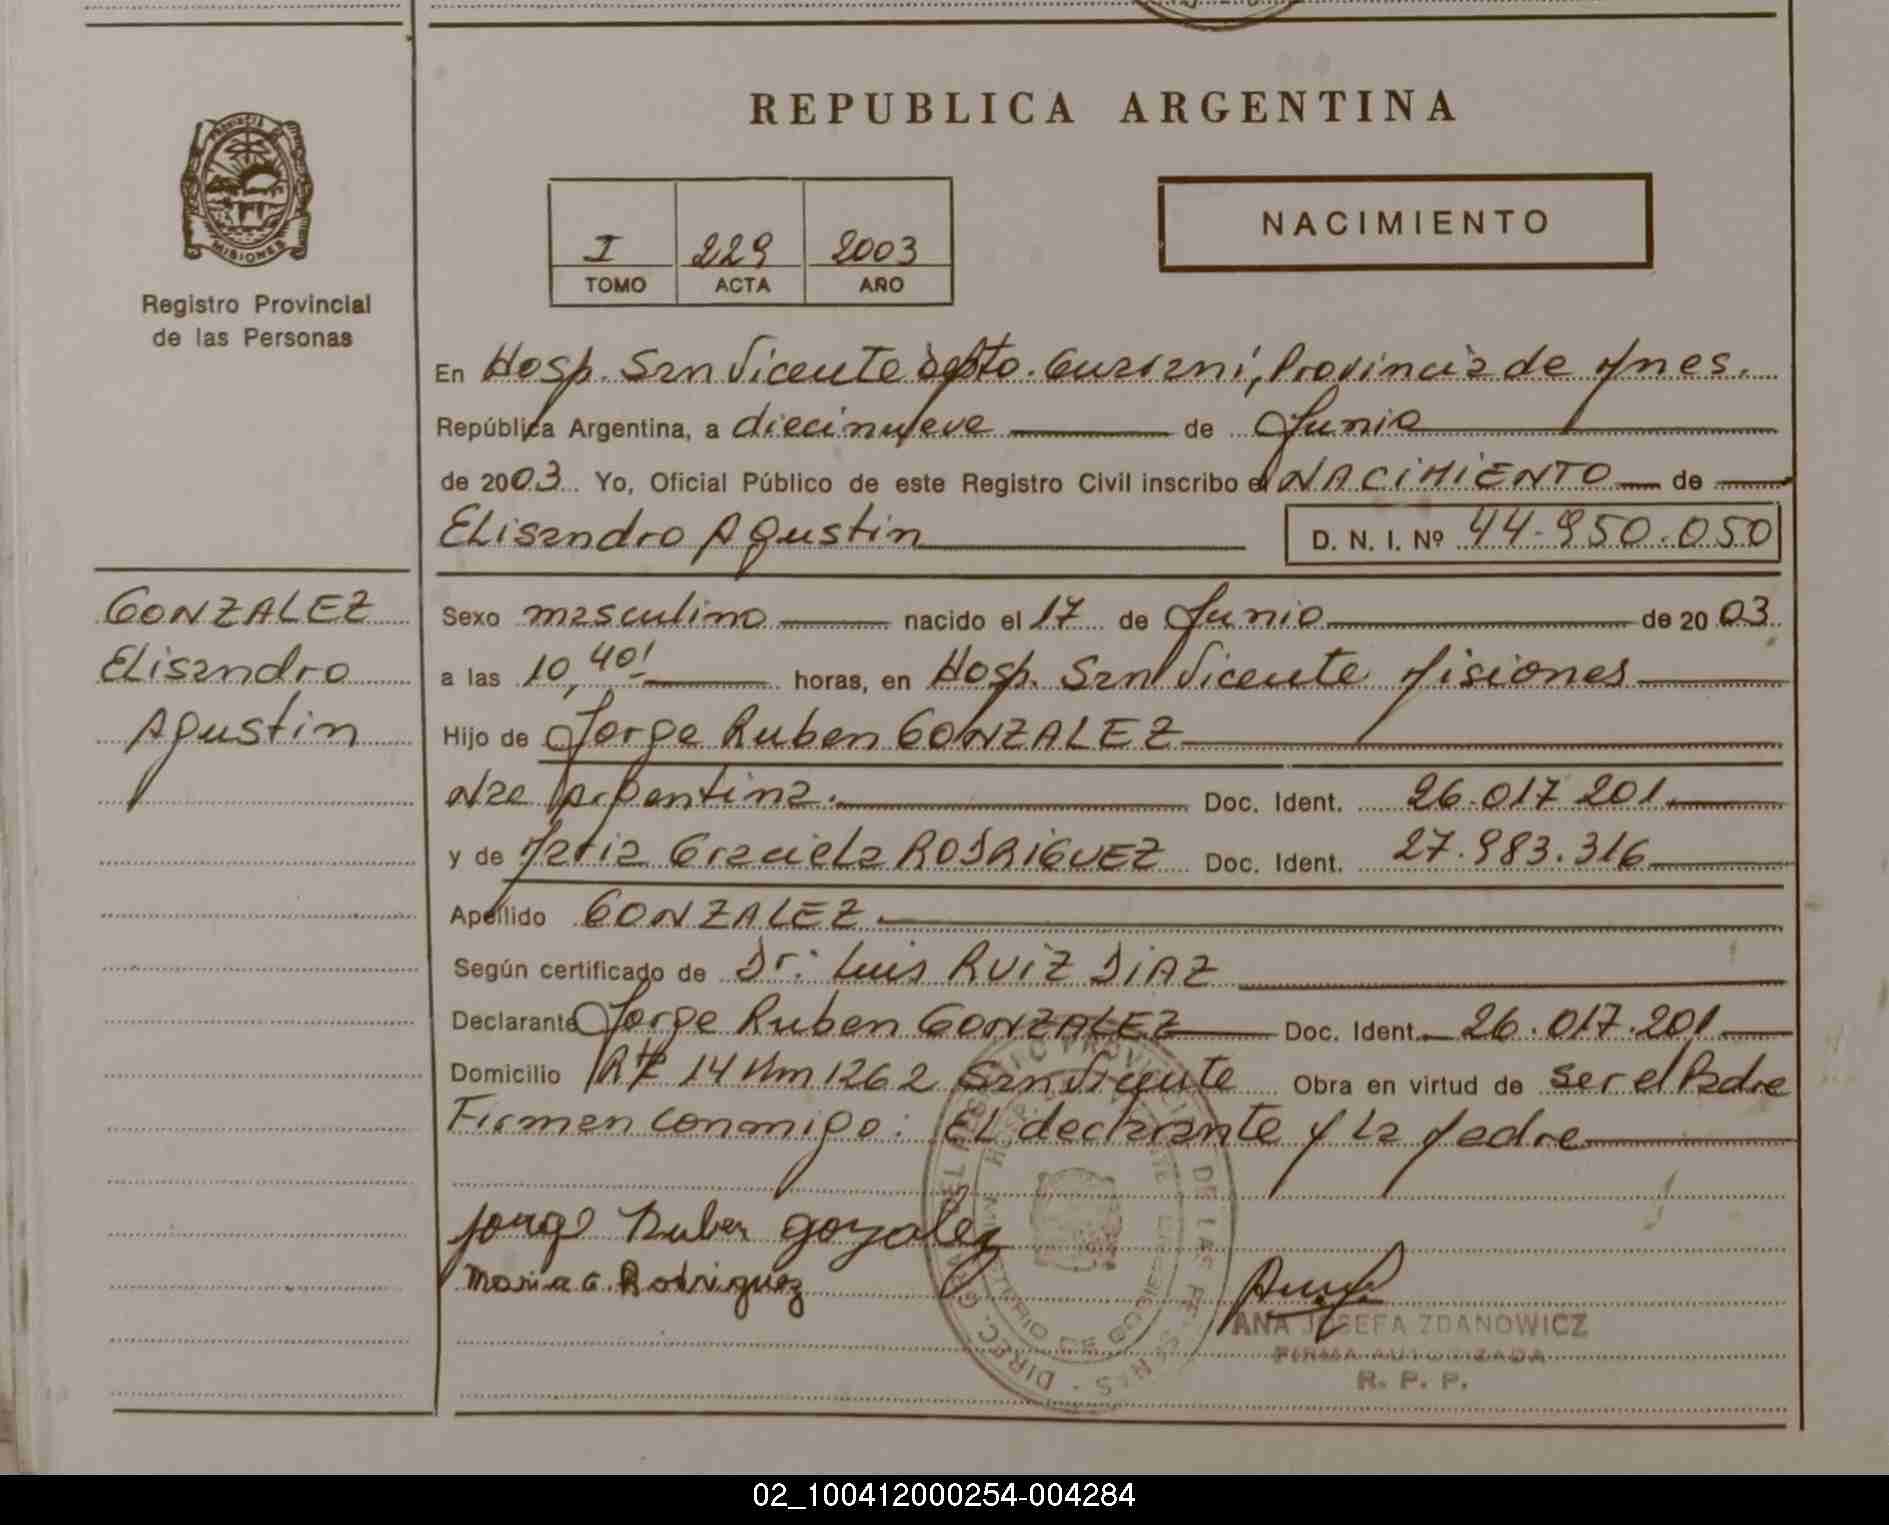 REPUBLICA ARGENTINA
PROVINCIA DE MISIONES
Registro Provincial
de las Personas
I 229 2003
TOMO ACTA AÑO
NACIMIENTO
En Hosp. San Vicente dpto. Guarani, Provincia de Mnes.
República Argentina, a diecinueve de Junio
de 2003 Yo, Oficial Público de este Registro Civil inscribo el NACIMIENTO de
Elisandro Agustin D. N. I. Nº 44.950.050
GONZALEZ
Elisandro
Agustin
Sexo masculino nacido el 17 de Junio de 2003
a las 10,40' horas, en Hosp. San Vicente Misiones
Hijo de Jorge Ruben GONZALEZ
Nac Argentina. Doc. Ident. 26.017.201
y de Maria Graciela RODRIGUEZ Doc. Ident. 27.983.316
Apellido GONZALEZ
Según certificado de Dr: Luis RUIZ DIAZ
Declarante Jorge Ruben GONZALEZ Doc. Ident. 26.017.201
Domicilio Rta 14 Km 1262 San Vicente Obra en virtud de ser el Padre
Firman conmigo: El declarante y la Madre
Jorge Ruben gonzalez
Maria G. Rodriguez
ANA JOSEFA ZDANOWICZ
FIRMA AUTORIZADA
R. P. P.
02_100412000254-004284